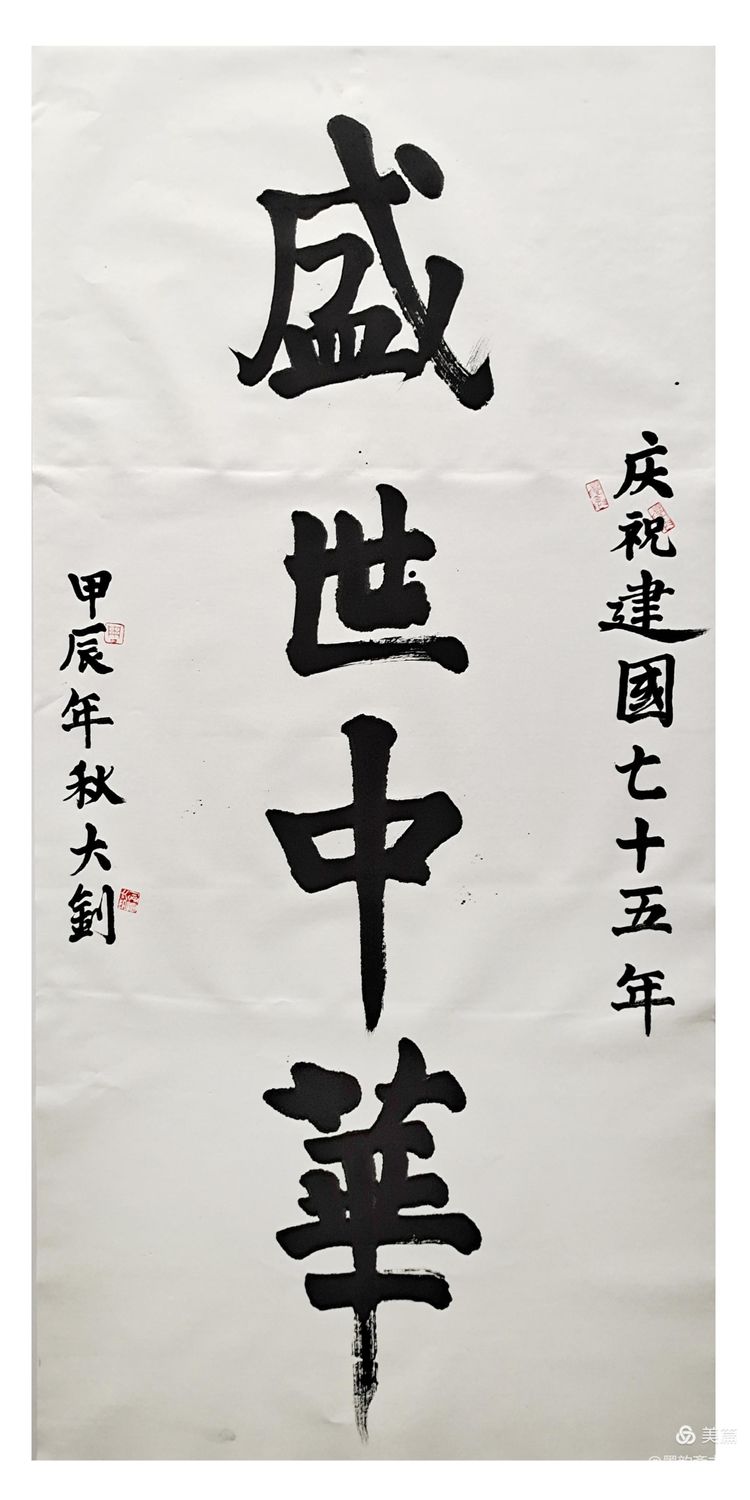 庆祝建國七十五年
盛世中華
甲辰年秋大釗
美篇